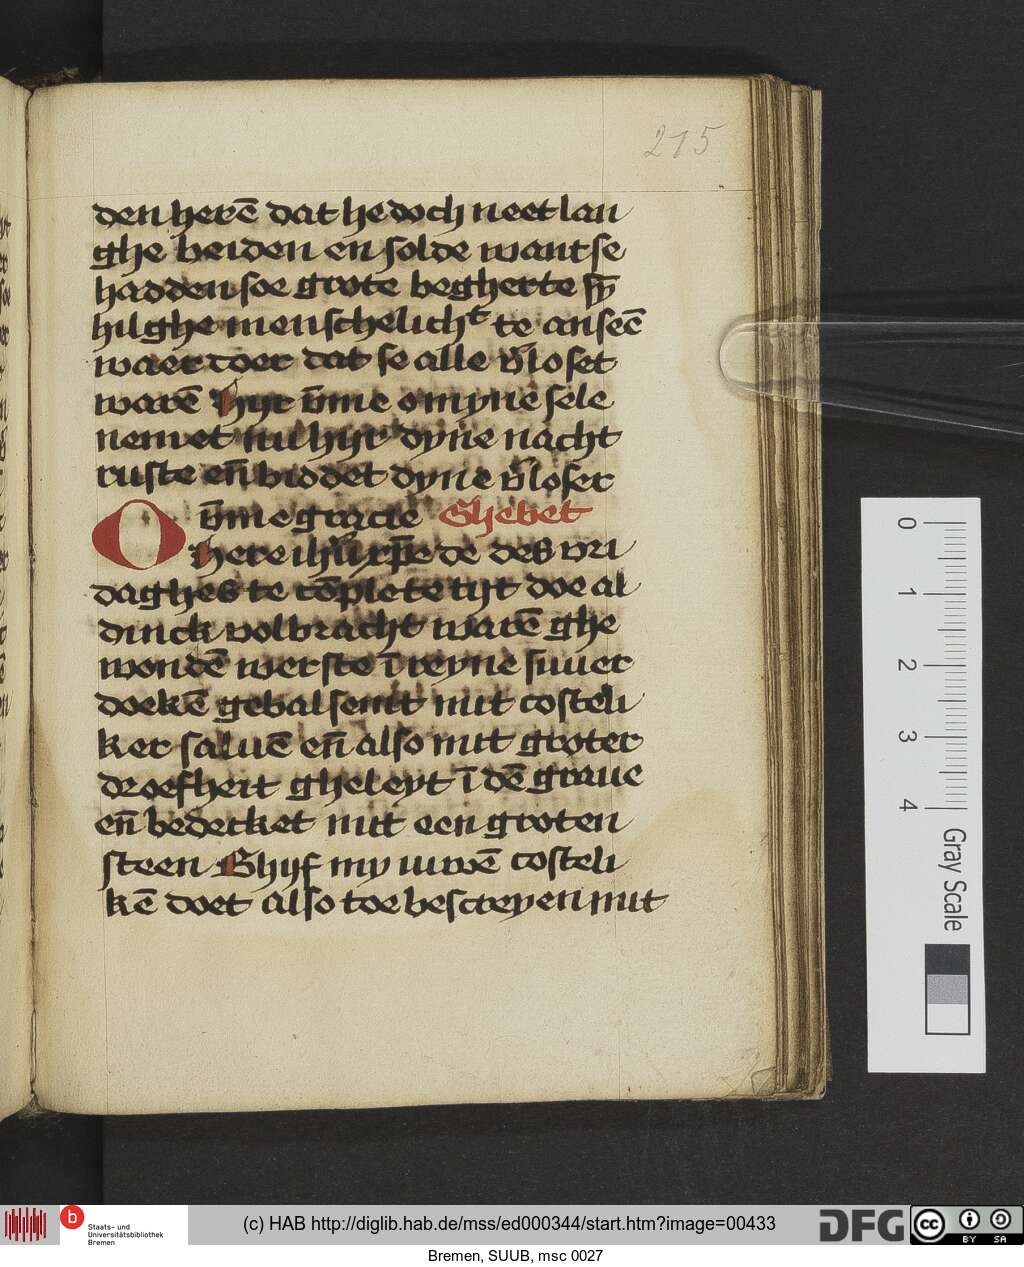 215
den herē dat he doch neet lan
ghe beiden en solde want se
hadden soe grote begherte sȳ
hilghe menschelichᵗ te anseē
waer doer dat se alle v̄loset
warē Hyr v̄me o myne sele
nemet nu hyr dyne nacht
ruste en̄ biddet dyne v̄loser
v̄me gracie Ghebet
O Here ihū xp̄e de des vri
daghes te cōplete tijt doe al
dinck volbracht warē ghe
wondē werste ī reyne suuer
doekē gebalsemt mit costeli
ker saluē en̄ also mit groter
droefheit gheleyt ī dē graue
en̄ bedecket mit een groten
steen Ghyf my uwē costeli
kē doet also toe bescreyen mit
0 1 2 3 4
Gray Scale
b Staats- und
Universitätsbibliothek
Bremen
(c) HAB http://diglib.hab.de/mss/ed000344/start.htm?image=00433
DFG
cc BY SA
Bremen, SUUB, msc 0027